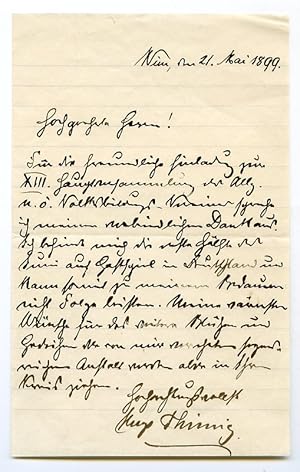 Wien, den 21. Mai 1899.
Hochgeehrte Herren!
Für die freundliche Einladung zur
XIII. Hauptversammlung des Allg.
n.ö. Volksbildungs-Vereines spreche
ich meinen verbindlichen Dank aus.
Ich befinde mich die erste Hälfte des
Juni auf Gastspiel in Deutschland und
kann somit zu meinem Bedauern
nicht Folge leisten. Meine wärmsten
Wünsche für das weitere Blühen und
Gedeihen der von mir verehrten segens-
reichen Anstalt werden aber in Ihrem
Kreis ziehen.
Hochachtungsvollst
Hugo Thimig